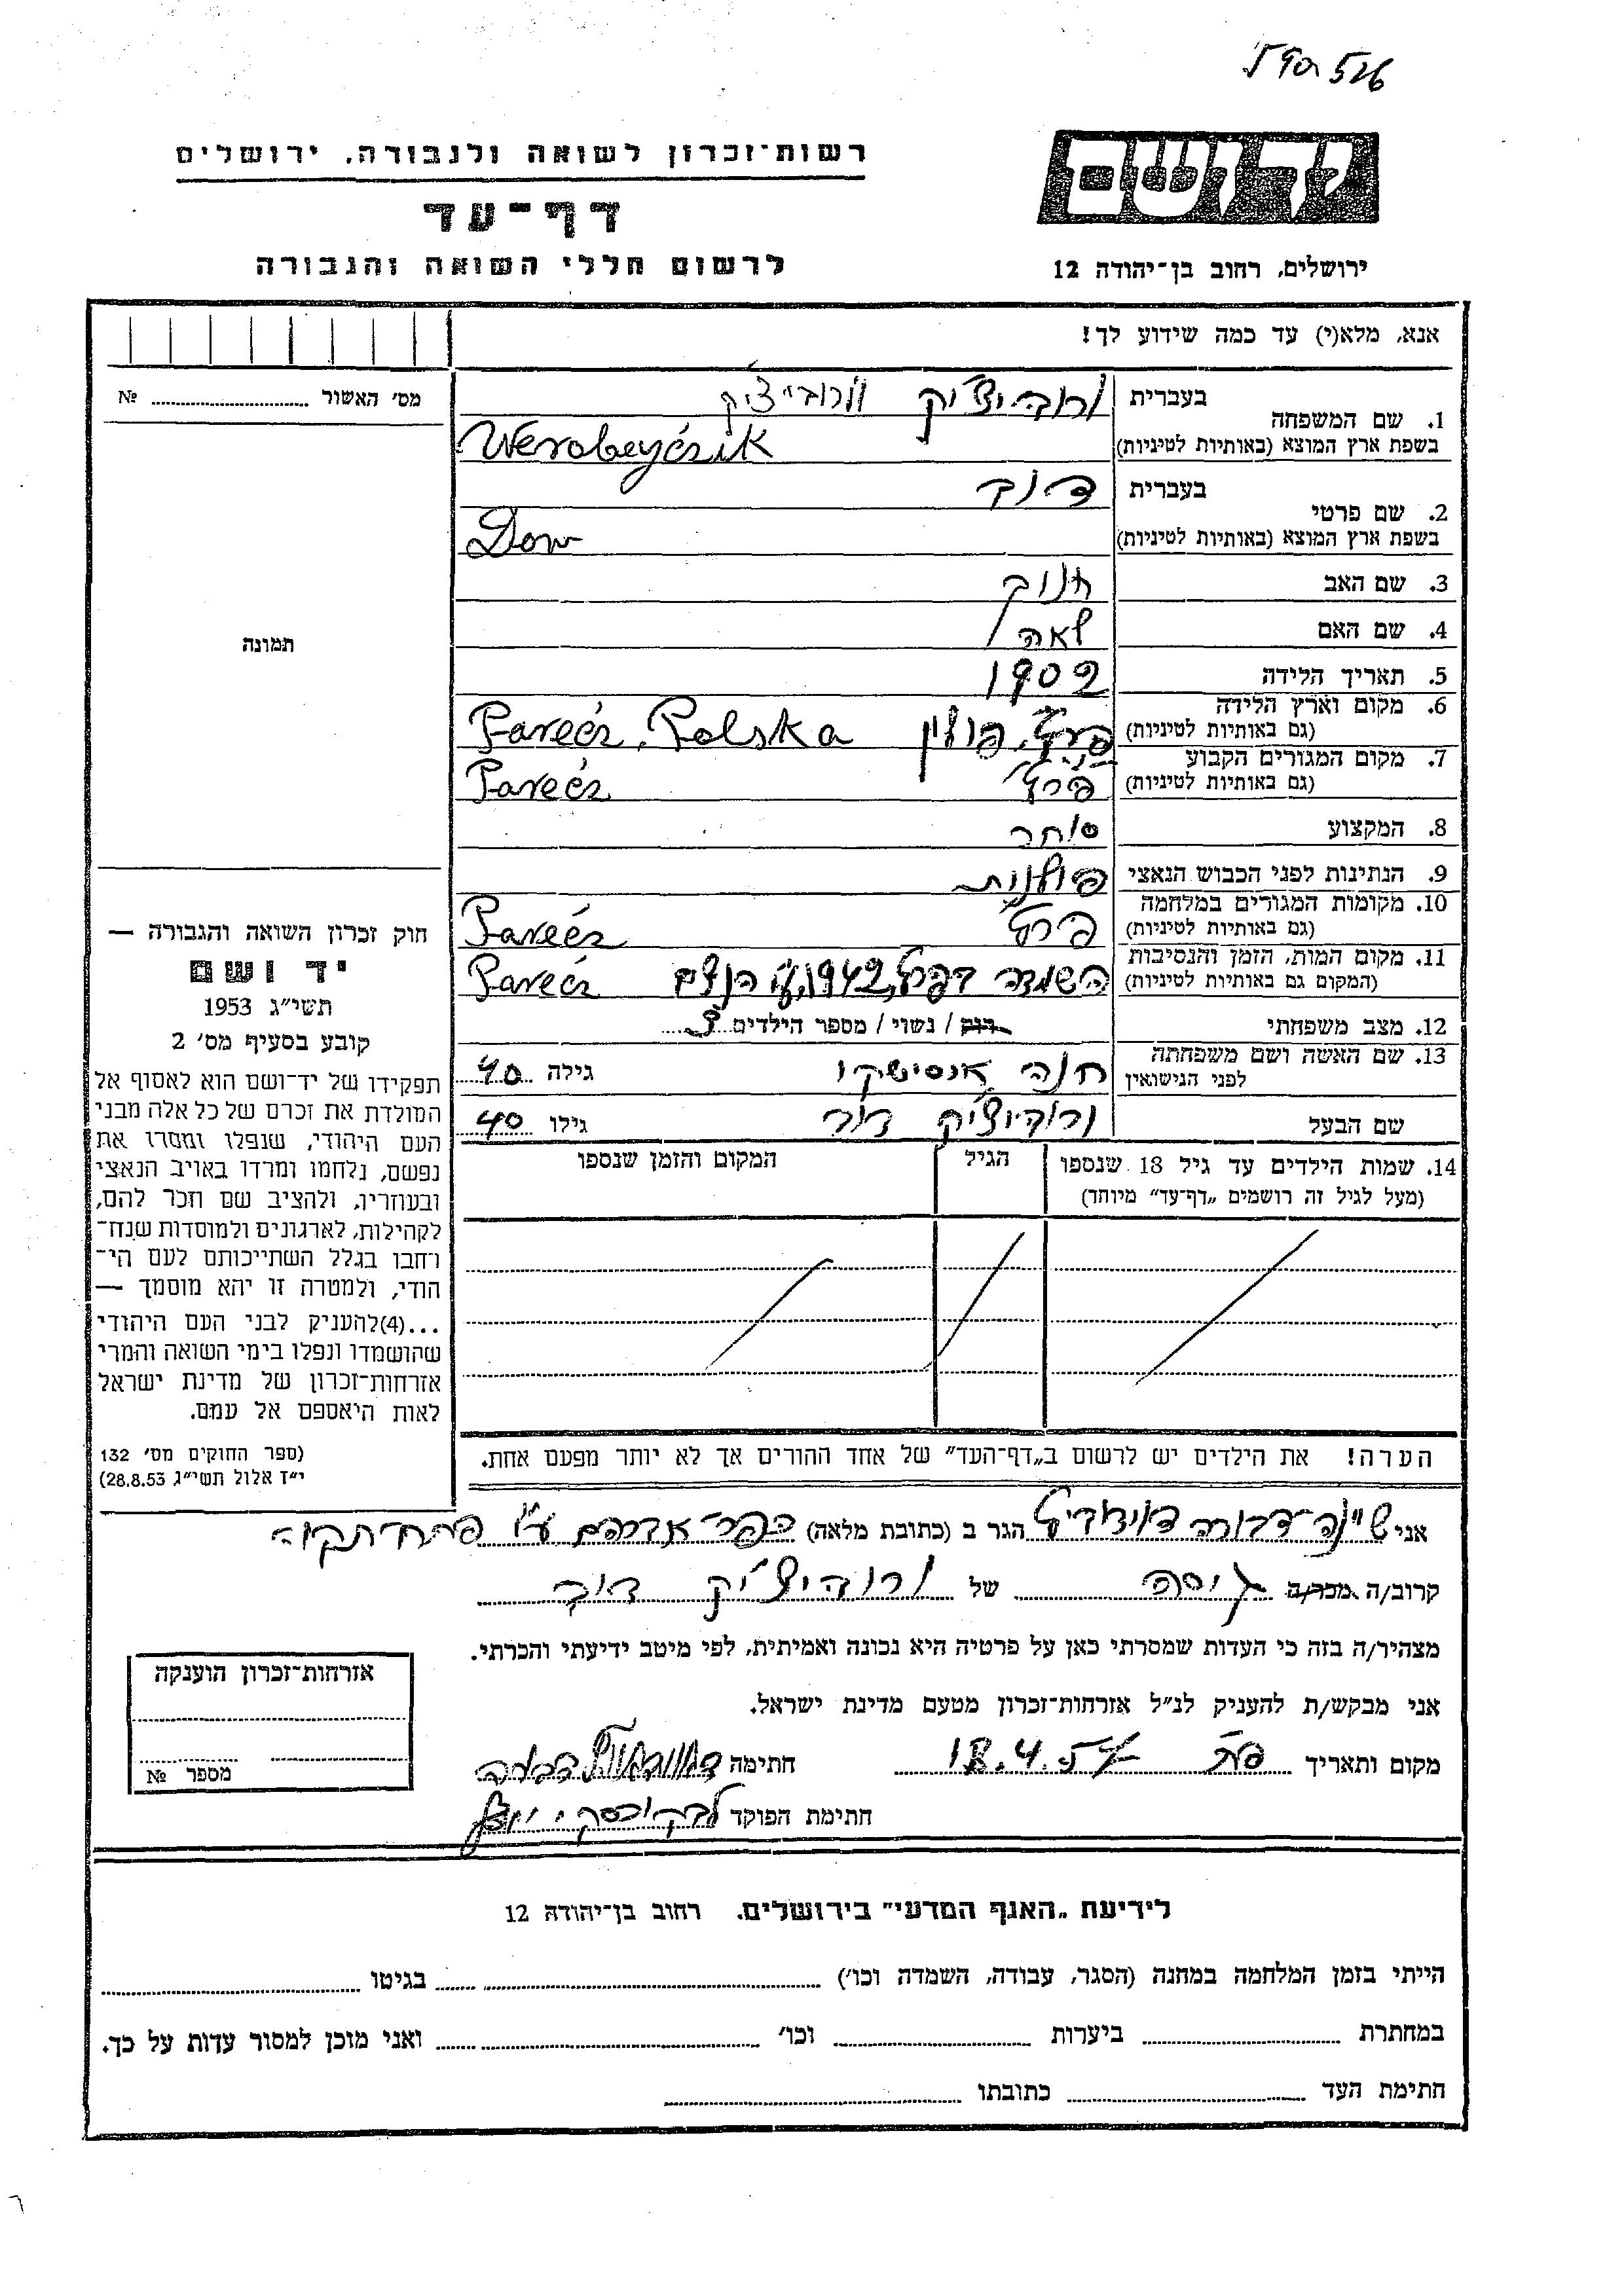 526
רשות־זכרון לשואה ולגבורה, ירושלים
יד ושם
דף־עד
לרשום חללי השואה והגבורה
ירושלים, רחוב בן־יהודה 12
אנא, מלא(י) עד כמה שידוע לך!
מס׳ האשור № 
1. שם המשפחה
בעברית ורוביצ׳יק
בשפת ארץ המוצא (באותיות לטיניות) Werobeyćzik
2. שם פרטי
בעברית דוב
בשפת ארץ המוצא (באותיות לטיניות) Dow
3. שם האב חנוך
4. שם האם לאה
תמונה
5. תאריך הלידה 1902
6. מקום וארץ הלידה
(גם באותיות לטיניות) פולין Parećz, Polska
7. מקום המגורים הקבוע
(גם באותיות לטיניות) Parećz
8. המקצוע סוחר
9. הנתינות לפני הכבוש הנאצי פולנית
10. מקומות המגורים במלחמה
(גם באותיות לטיניות) Parećz
11. מקום המות, הזמן והנסיבות
(המקום גם באותיות לטיניות) 1942 Parećz
12. מצב משפחתי רוק / נשוי / מספר הילדים 3
13. שם האשה ושם משפחתה
לפני הנישואין חנה גילה 40
שם הבעל דוב גילו 40
14. שמות הילדים עד גיל 18 שנספו
(מעל לגיל זה רושמים „דף־עד״ מיוחד)
הגיל
המקום והזמן שנספו
הערה! את הילדים יש לרשום ב„דף־העד״ של אחד ההורים אך לא יותר מפעם אחת.
חוק זכרון השואה והגבורה —
יד ושם
תשי״ג 1953
קובע בסעיף מס׳ 2
תפקידו של יד־ושם הוא לאסוף אל
המולדת את זכרם של כל אלה מבני
העם היהודי, שנפלו ומסרו את
נפשם, נלחמו ומרדו באויב הנאצי
ובעוזריו, ולהציב שם וזכר להם,
לקהילות, לארגונים ולמוסדות שנח־
רחבו בגלל השתייכותם לעם הי־
הודי, ולמטרה זו יהא מוסמך —
...(4)להעניק לבני העם היהודי
שהושמדו ונפלו בימי השואה והמרי
אזרחות־זכרון של מדינת ישראל
לאות היאספם אל עמם.
(ספר החוקים מס׳ 132
י״ד אלול תשי״ג 28.8.53)
אני דבורה הגר ב (כתובת מלאה) כפר־אברהם ע״י פתח־תקוה
קרוב/ה מכר/ה גיסה של דוב
מצהיר/ה בזה כי העדות שמסרתי כאן על פרטיה היא נכונה ואמיתית, לפי מיטב ידיעתי והכרתי.
אני מבקש/ת להעניק לנ״ל אזרחות־זכרון מטעם מדינת ישראל.
מקום ותאריך פ״ת 18.4.57 חתימה
חתימת הפוקד
אזרחות־זכרון הוענקה
מספר №
לידיעת „האגף המדעי״ בירושלים. רחוב בן־יהודה 12
הייתי בזמן המלחמה במחנה (הסגר, עבודה, השמדה וכו׳) בגיטו
במחתרת ביערות וכו׳ ואני מוכן למסור עדות על כך.
חתימת העד כתובתו